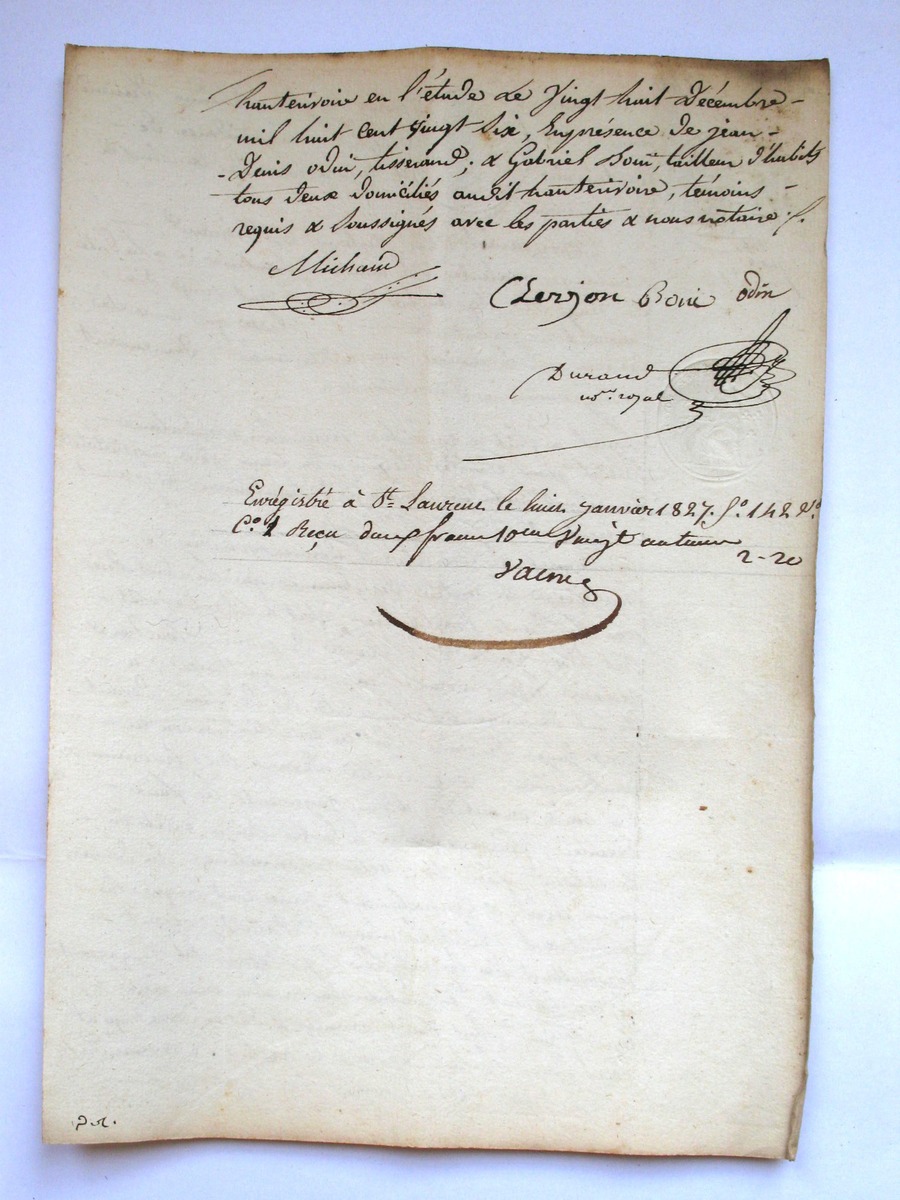 hauterivoire en l'étude le Vingt huit Décembre -
mil huit cent vingt six, Enprésence de jean -
- Denis odin, tisserand; & Gabriel Boni, tailleur d'habits
tous deux domiciliés audit hauterivoire, témoins -
requis & Soussignés avec les parties & nous notaire ./.
Michaud
Clerjon Boni odin
Durand
nore. royal
Enrégistré à St. Laurent le huit janvier 1827. fo. 142 Vo.
Co. 1 Reçu deux francs vingt centimes
2-20